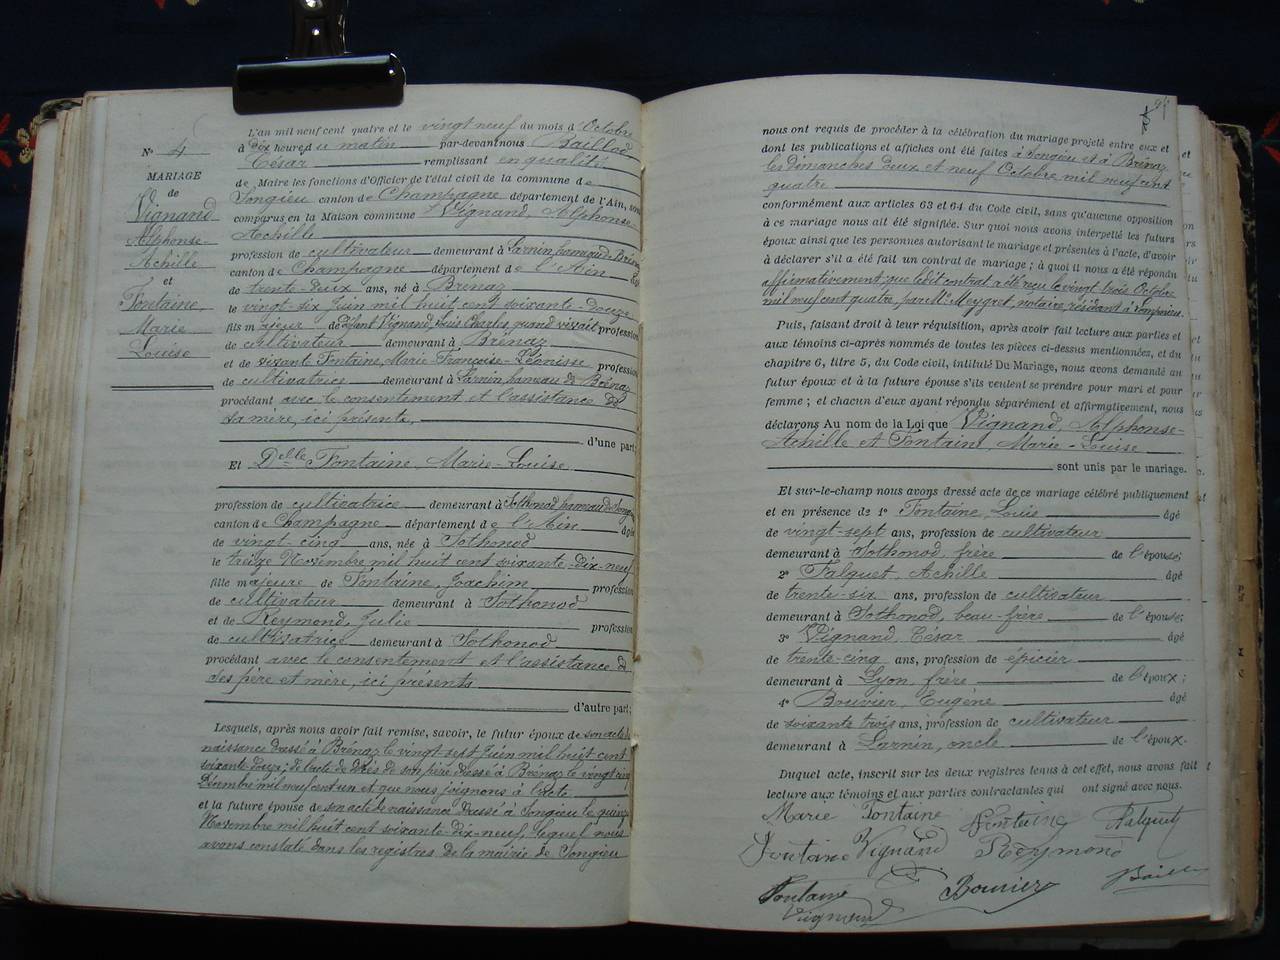 N° 4
MARIAGE
de
Vignand
Alphonse-
Achille
et
Fontaine,
Marie
Louise
L'an mil neuf cent quatre et le vingt neuf du mois d'Octobre
à dix heures du matin par-devant nous Baillod
César remplissant en qualité
de Maire les fonctions d'Officier de l'état civil de la commune de
Songieu canton de Champagne département de l'Ain, sont
comparus en la Maison commune Vignand, Alphonse-
Achille
profession de cultivateur demeurant à Larnin hameau de Brénaz
canton de Champagne département de l'Ain âgé
de trente-deux ans, né à Brénaz
le vingt-six Juin mil huit cent soixante-douze
fils majeur de défunt Vignand, Louis Charles quand vivait profession
de cultivateur demeurant à Brénaz
et de vivante Fontaine, Marie Françoise-Léonisse profession
de cultivatrice demeurant à Larnin hameau de Brénaz
procédant avec le consentement et l'assistance de
sa mère, ici présente,
d'une part;
Et Delle Fontaine, Marie-Louise
profession de cultivatrice demeurant à Sothonod hameau de Songieu
canton de Champagne département de l'Ain âgée
de vingt-cinq ans, née à Sothonod
le treize Novembre mil huit cent soixante-dix-neuf
fille majeure de Fontaine, Joachim profession
de cultivateur demeurant à Sothonod
et de Reymond, Julie profession
de cultivatrice demeurant à Sothonod
procédant avec le consentement et l'assistance de
ses père et mère, ici présents
d'autre part;
Lesquels, après nous avoir fait remise, savoir, le futur époux de son acte de
naissance dressé à Brénaz le vingt sept Juin mil huit cent
soixante-douze; de l'acte de décès de son père dressé à Brénaz le vingt cinq
Décembre mil neuf cent un et que nous joignons à l'acte.
et la future épouse de son acte de naissance dressé à Songieu le quinze
Novembre mil huit cent soixante-dix-neuf, lequel nous
avons constaté dans les registres de la mairie de Songieu
nous ont requis de procéder à la célébration du mariage projeté entre eux et
dont les publications et affiches ont été faites à Songieu et à Brénaz
les dimanches deux et neuf Octobre mil neuf cent
quatre
conformément aux articles 63 et 64 du Code civil, sans qu'aucune opposition
à ce mariage nous ait été signifiée. Sur quoi nous avons interpellé les futurs
époux ainsi que les personnes autorisant le mariage et présentes à l'acte, d'avoir
à déclarer s'il a été fait un contrat de mariage; à quoi il nous a été répondu
affirmativement que ledit contrat a été reçu le vingt trois Octobre
mil neuf cent quatre, par Me Meygret notaire, résidant à Lompnieu.
Puis, faisant droit à leur réquisition, après avoir fait lecture aux parties et
aux témoins ci-après nommés de toutes les pièces ci-dessus mentionnées, et du
chapitre 6, titre 5, du Code civil, intitulé Du Mariage, nous avons demandé au
futur époux et à la future épouse s'ils veulent se prendre pour mari et pour
femme; et chacun d'eux ayant répondu séparément et affirmativement, nous
déclarons Au nom de la Loi que Vignand, Alphonse-
Achille et Fontaine, Marie-Louise
sont unis par le mariage.
Et sur-le-champ nous avons dressé acte de ce mariage célébré publiquement
et en présence de 1° Fontaine, Louis âgé
de vingt-sept ans, profession de cultivateur
demeurant à Sothonod, frère de l'épouse;
2° Falquet, Achille âgé
de trente-six ans, profession de cultivateur
demeurant à Sothonod, beau-frère de l'épouse;
3° Vignand, César âgé
de trente-cinq ans, profession de épicier
demeurant à Gyon, frère de l'époux;
4° Bouvier, Eugène âgé
de soixante trois ans, profession de cultivateur
demeurant à Larnin, oncle de l'époux.
Duquel acte, inscrit sur les deux registres tenus à cet effet, nous avons fait
lecture aux témoins et aux parties contractantes qui ont signé avec nous.
Marie Fontaine Fontaine Falquet
Fontaine Vignand Reymond
Fontaine Bouvier
Vignand